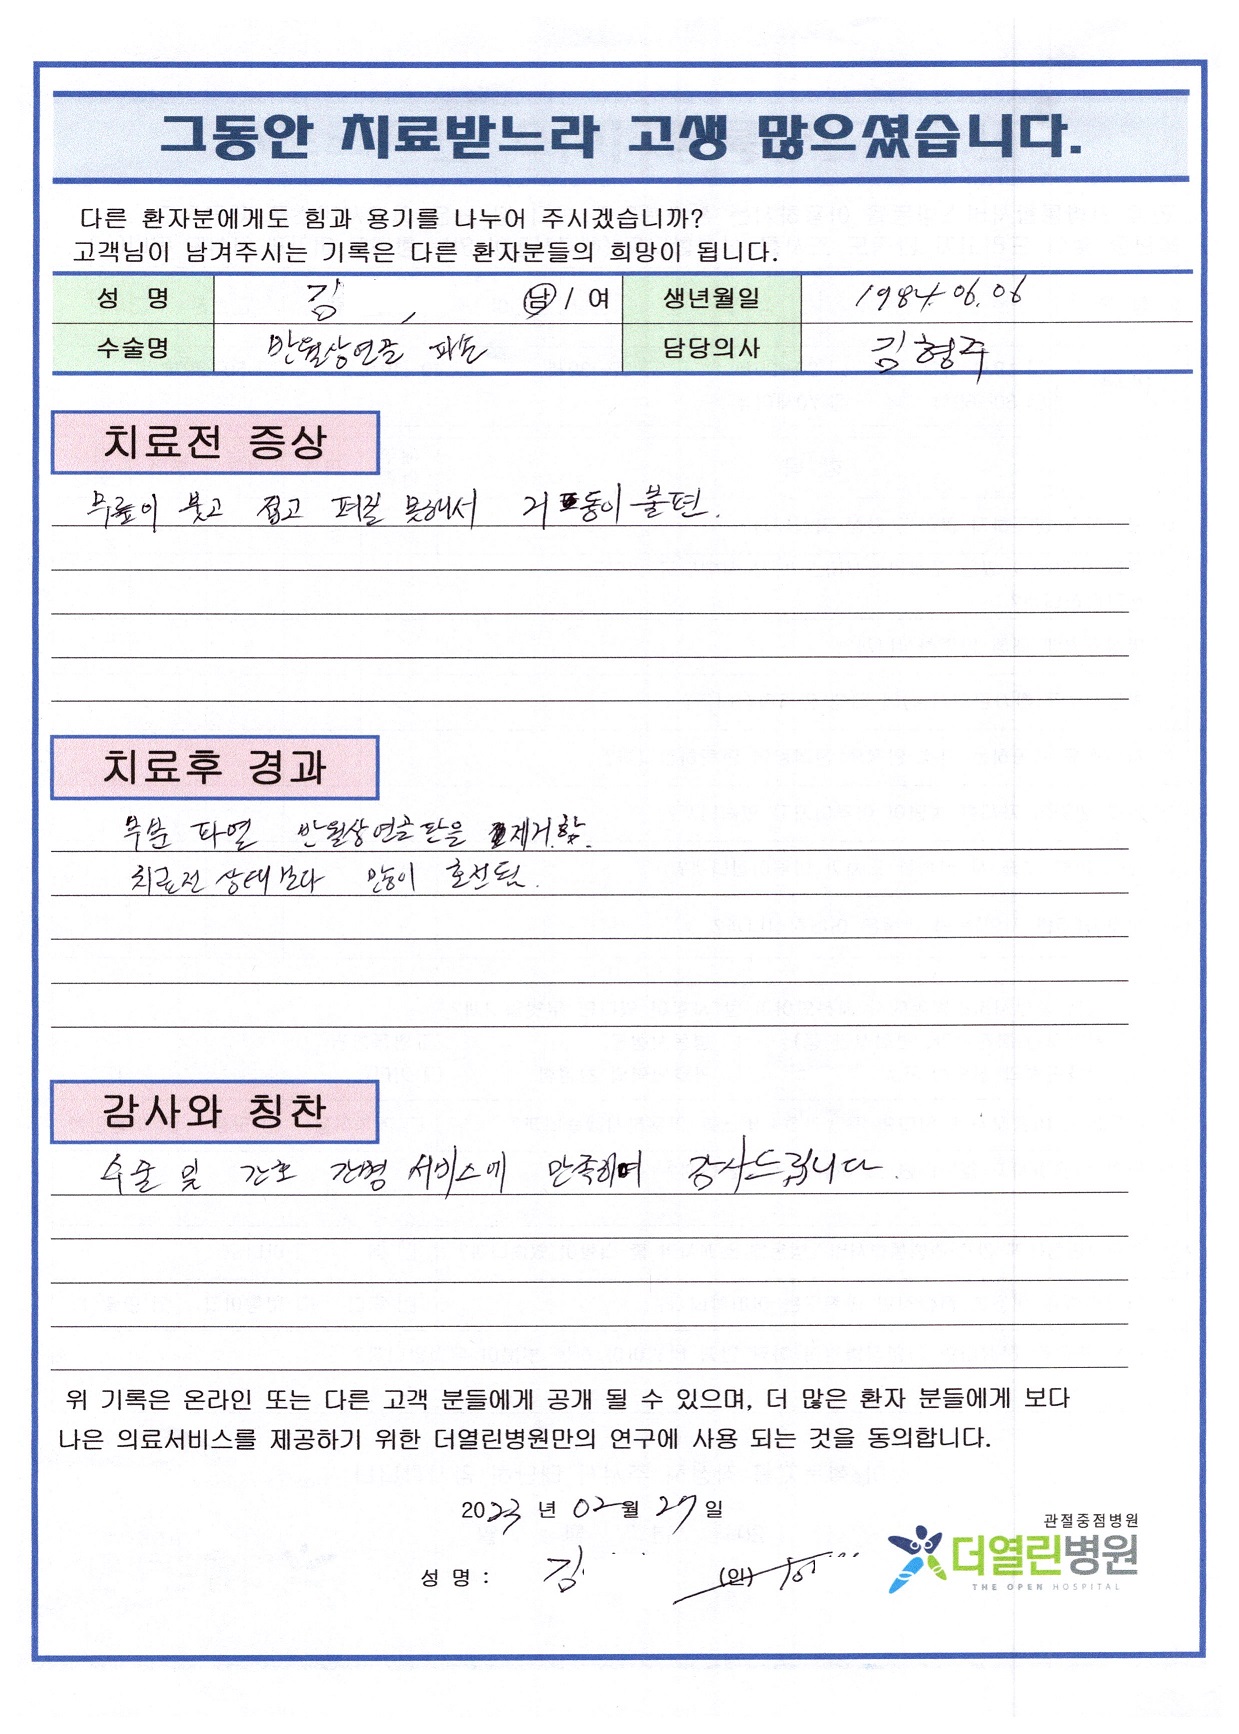 그동안 치료받느라 고생 많으셨습니다.
다른 환자분에게도 힘과 용기를 나누어 주시겠습니까?
고객님이 남겨주시는 기록은 다른 환자분들의 희망이 됩니다.
성 명 김 남 / 여 생년월일 1984.06.06
수술명 반월상연골 파손 담당의사 김형주
치료전 증상
무릎이 붓고 접고 펴질 못해서 거동이 불편.
치료후 경과
부분 파열 반월상연골판을 제거함.
치료전 상태보다 많이 호전됨.
감사와 칭찬
수술 및 간호 간병 서비스에 만족하여 감사드립니다.
위 기록은 온라인 또는 다른 고객 분들에게 공개 될 수 있으며, 더 많은 환자 분들에게 보다
나은 의료서비스를 제공하기 위한 더열린병원만의 연구에 사용 되는 것을 동의합니다.
2023 년 02월 27일
성 명 : 김 (인)
관절중점병원
더열린병원
THE OPEN HOSPITAL